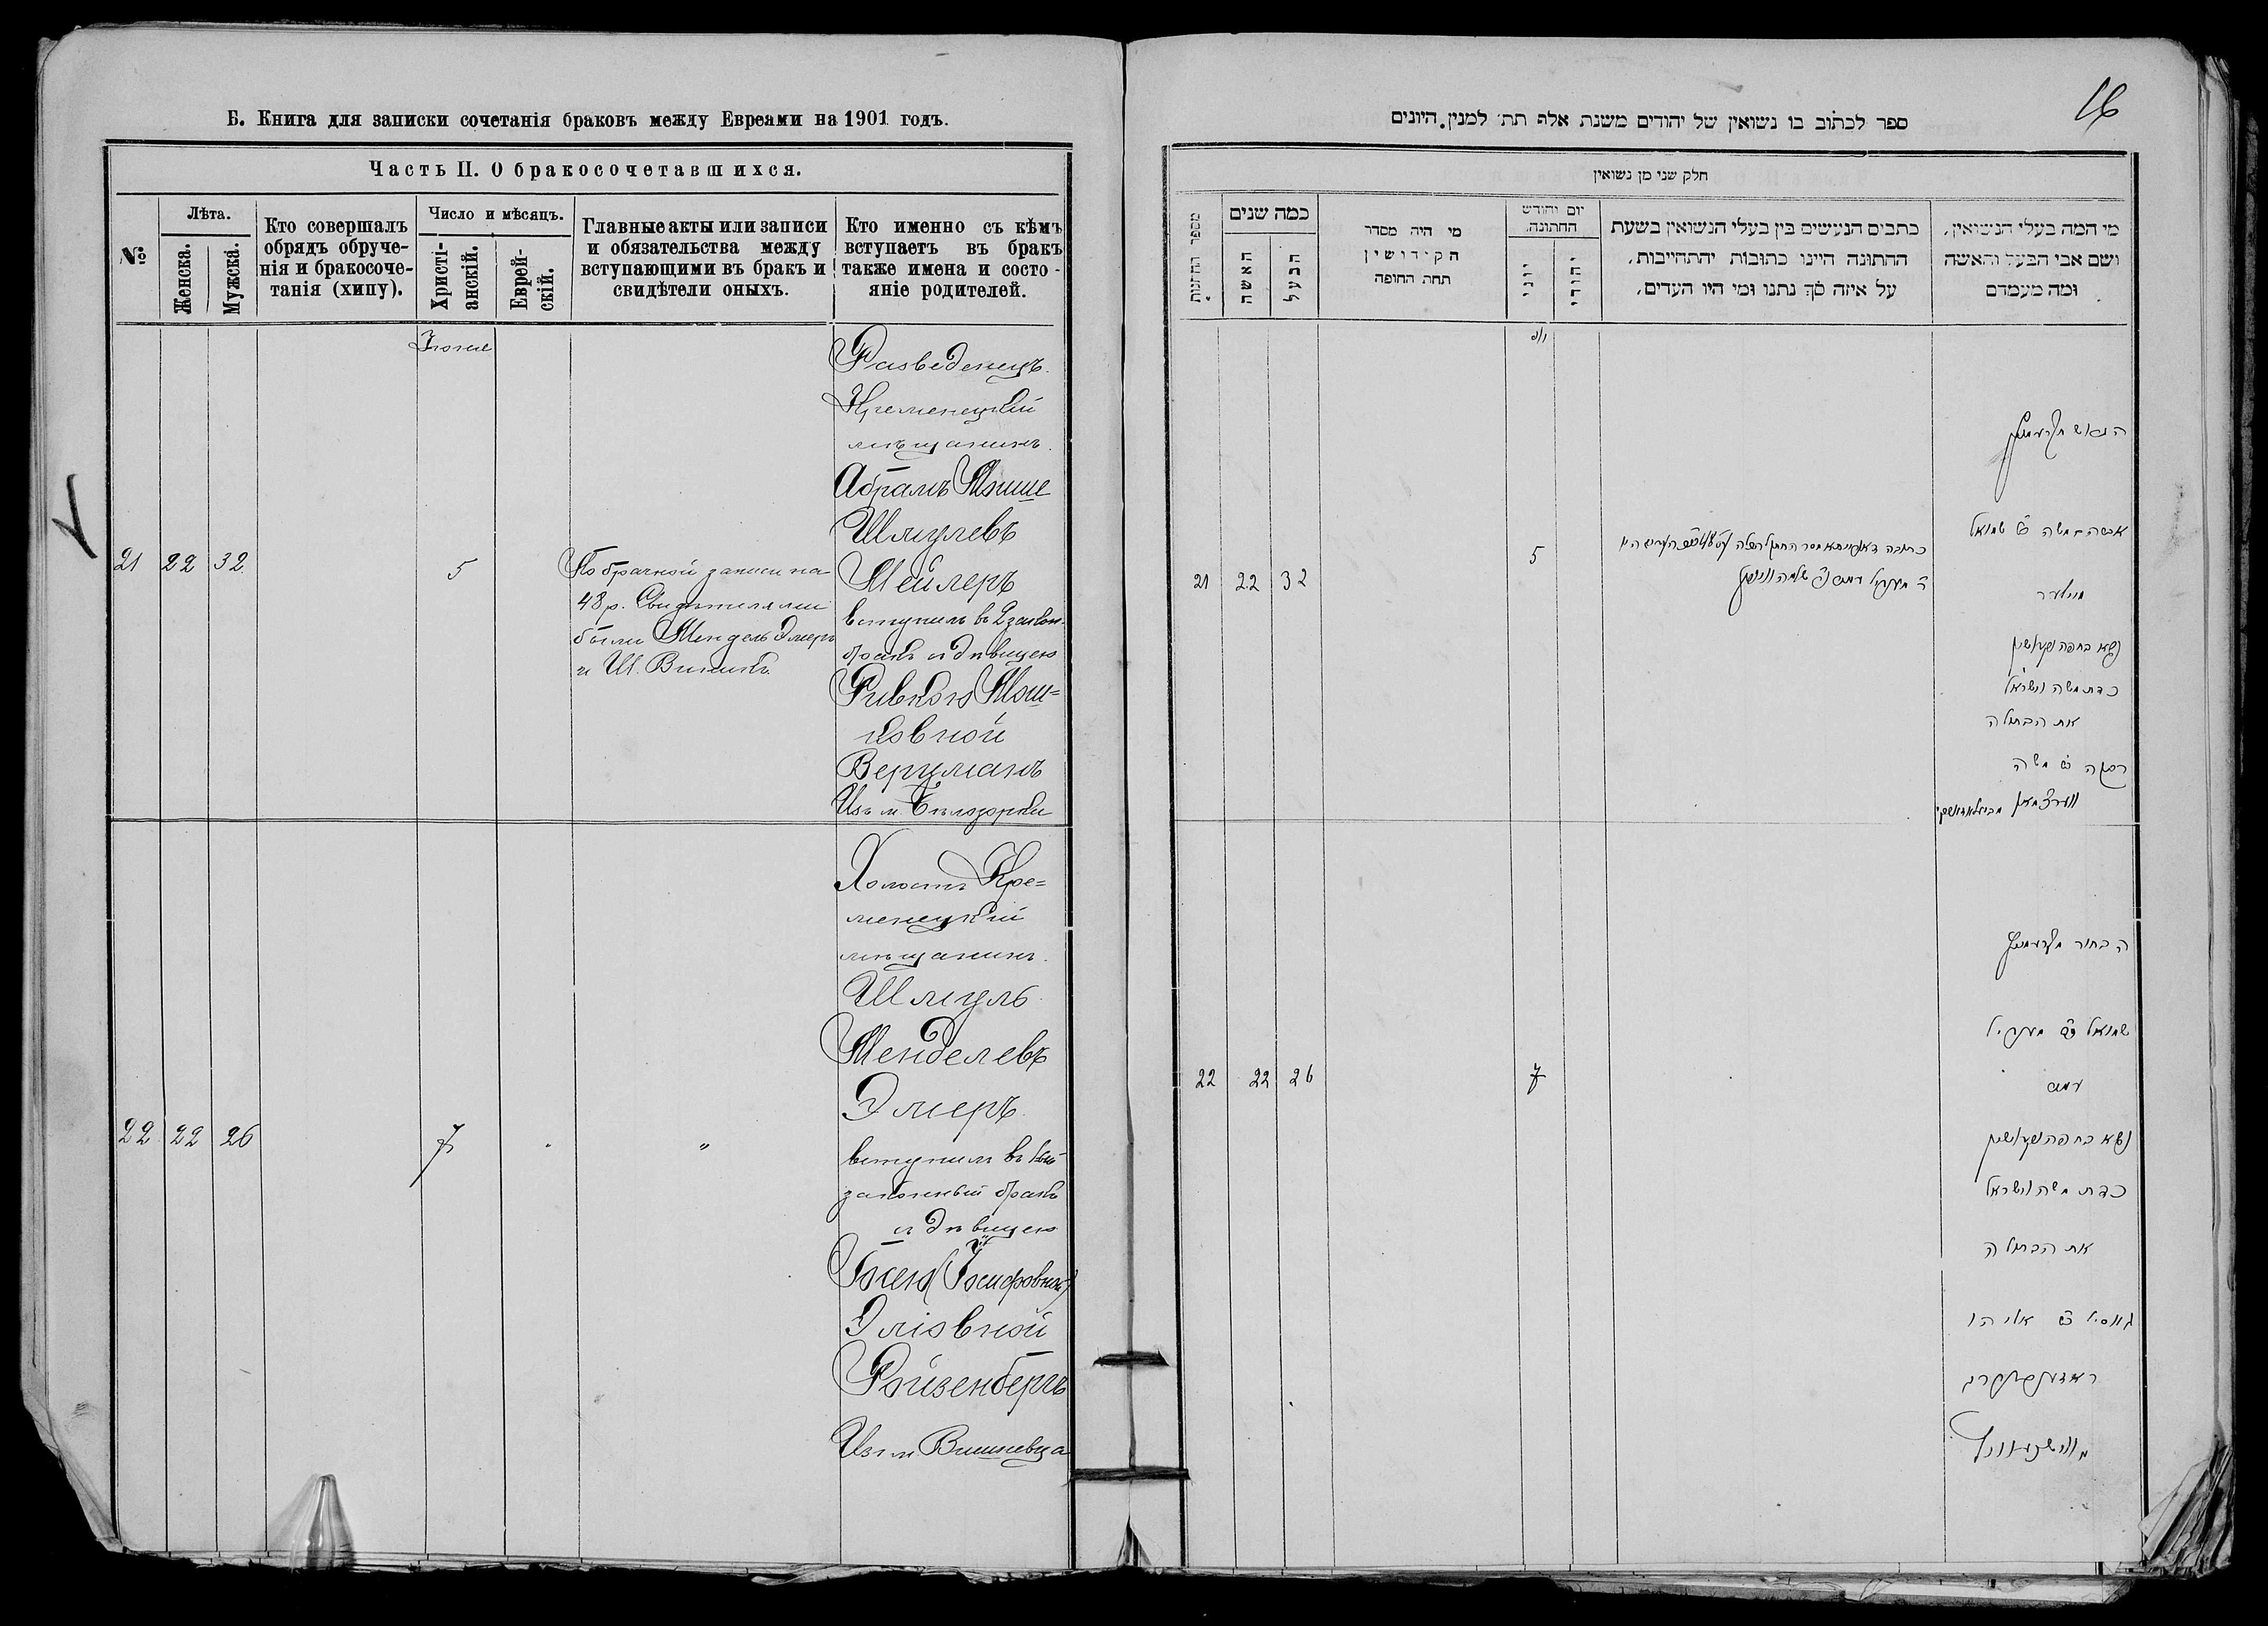 Б. Книга для записки сочетанія браковъ между Евреями на 1901 годъ.
Часть II. О бракосочетавшихся.
№
Лѣта.
Женска.
Мужска.
Кто совершалъ
обрядъ обруче-
нія и бракосоче-
танія (хипу).
Число и мѣсяцъ.
Христі-
анскій.
Еврей-
скій.
Главные акты или записи
и обязательства между
вступающими въ бракъ и
свидѣтели оныхъ.
Кто именно съ кѣмъ
вступаетъ въ бракъ
также имена и состо-
яніе родителей.
21 22 32
5
По брачной записи на
48 р. Свидѣтелями
были Мендель Эмеръ
и Ш.
Разведенецъ
Кременецкій
мѣщанинъ
Абрамъ Мошше
Шмулевъ
Мейлеръ
вступилъ въ 2 закон.
бракъ съ дѣвицею
Ривкою Мош=
ковной
Верцманъ
Изъ м. Бѣлозорки
22 22 26
7
"
Холостъ Кре=
менецкій
мѣщанинъ
Шмуль
Менделевъ
Эмеръ
вступилъ въ 1ый
законный бракъ
съ дѣвицею
(Іосифовной)
Эліовной
Ройзенбергъ
Изъ м. Вишневца
16
ספר לכתוב בו נשואין של יהודים משנת אלף תת׳ למנין היונים
חלק שני מן נשואין
מספר החתונות
כמה שנים
האשה
הבעל
מי היה מסדר
הקידושין
תחת החופה
יום וחודש
החתונה.
יוני
יהודי
כתבים הנעשים בין בעלי הנשואין בשעת
החתונה היינו כתובות יהתחייבות,
על איזה סך נתנו ומי היו העדים,
מי המה בעלי הנשואין,
ושם אבי הבעל והאשה
ומה מעמדם
21 22 32
5
הגרוש מקרעמניץ
אברהם משה ב״ש שמואל
מיילער
נשא בחופה וקידושין
כדת משה וישראל
את הבתולה
רבקה ב״מ משה
ווערצמאן
22 22 26
7
הבחור מקרעמניץ
שמואל ב״ר מענדיל
עמר
נשא בחופה וקידושין
כדת משה וישראל
את הבתולה
אליהו